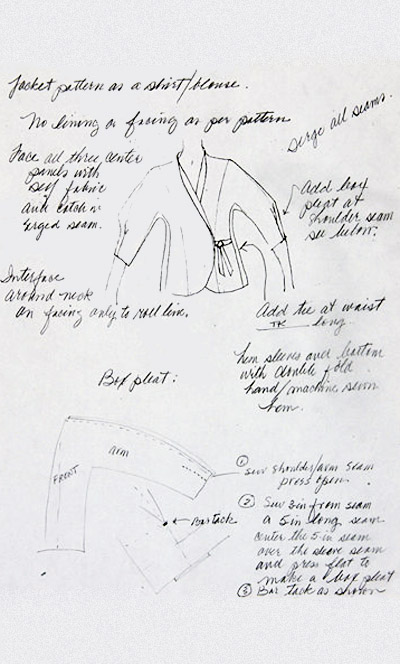 Jacket pattern as a shirt/blouse.
No lining or facing as per pattern
serge all seams.
Face all three center
panels with
self fabric
and catch in
serged seam.
Add box
pleat at
shoulder seam
see below.
Interface
around neck
on facing only to roll line.
Add tie at waist
TK long.
hem sleeves and bottom
with double fold
hand/machine sewn
hem.
Box pleat:
FRONT
arm
① Sew shoulder/arm seam
press open.
Bar tack
② Sew 3 in from seam
a 5 in long seam
center the 5 in seam
over the sleeve seam
and press flat to
make a box pleat
③ Bar tack as shown